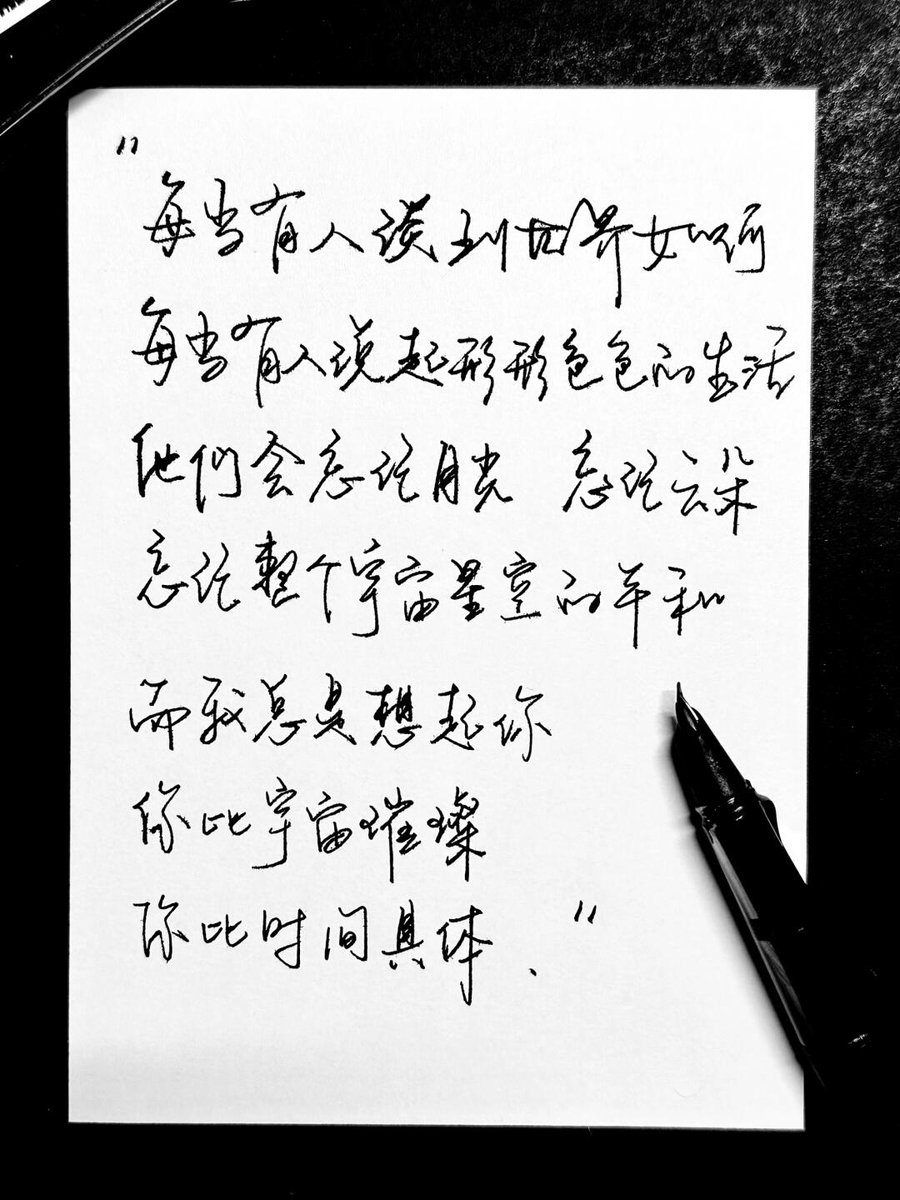 "
每当有人谈到世界如何
每当有人说起形形色色的生活
他们会忘记月光 忘记云朵
忘记整个宇宙星空的平和
而我总是想起你
你比宇宙璀璨
你比时间具体."